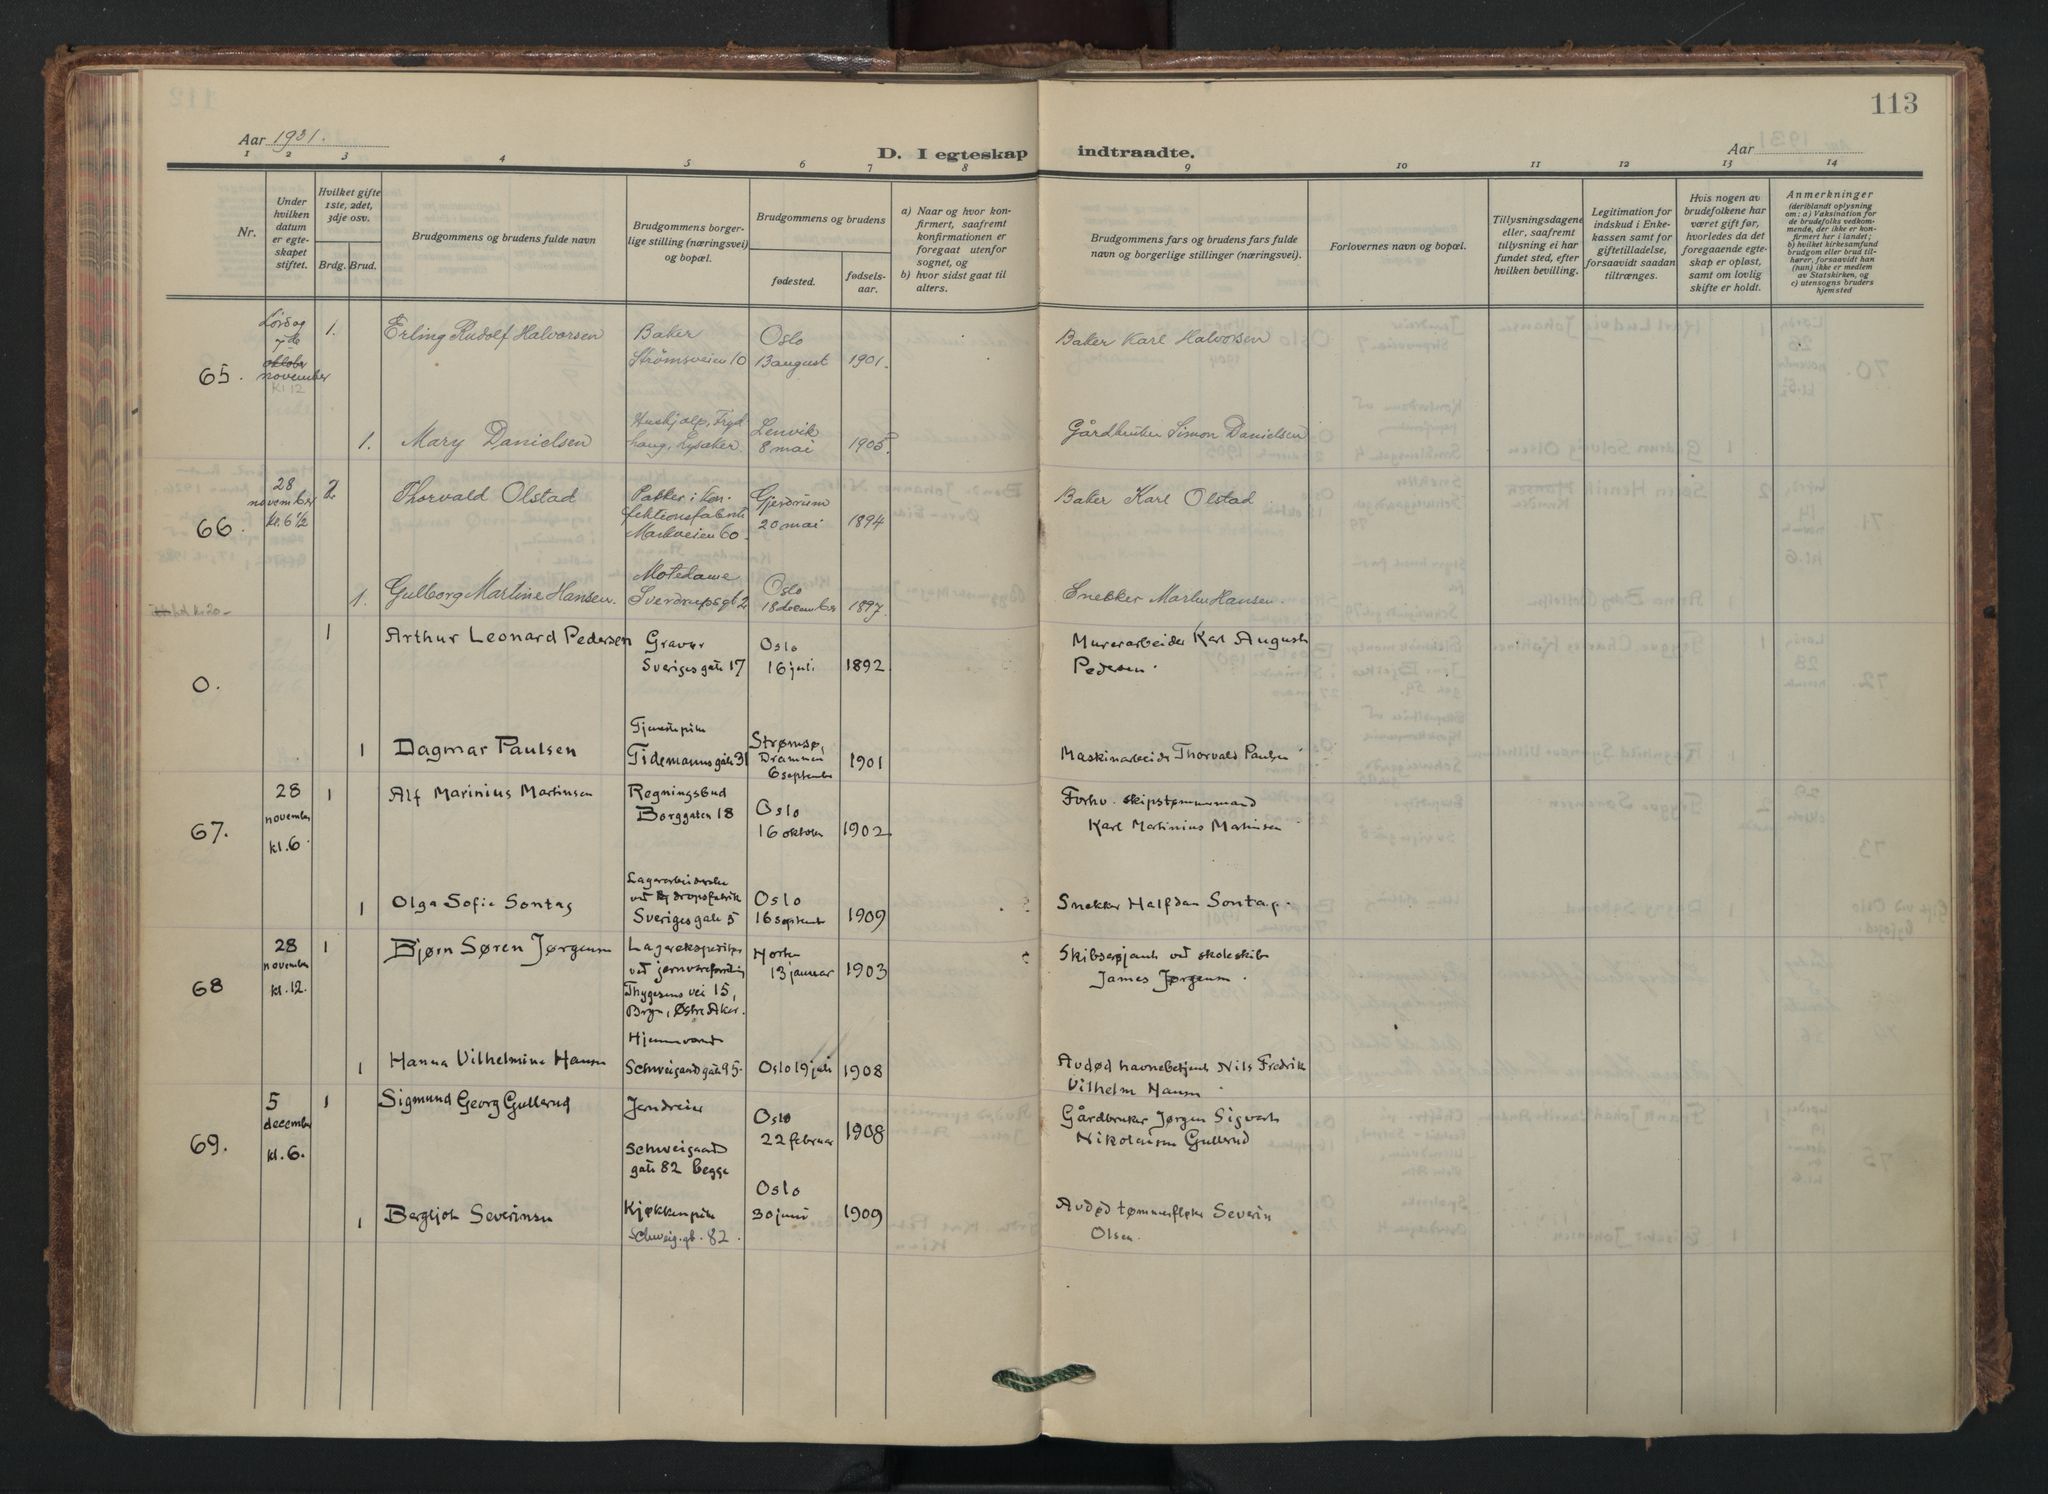 113
Aar 1931.
D. I egteskap indtraadte.
Aar
1 2 3 4 5 6 7 8 9 10 11 12 13 14
Nr.
Under
hvilken
datum
er egte-
skapet
stiftet.
Hvilket gifte
1ste, 2det,
3dje osv.
Brdg. Brud.
Brudgommens og brudens fulde navn
Brudgommens borger-
lige stilling (næringsvei)
og bopæl.
Brudgommens og brudens
fødested.
fødsels-
aar.
a) Naar og hvor kon-
firmert, saafremt
konfirmationen er
foregaat utenfor
sognet, og
b) hvor sidst gaat til
alters.
Brudgommens fars og brudens fars fulde
navn og borgerlige stillinger (næringsvei).
Forlovernes navn og bopæl.
Tillysningsdagene
eller, saafremt
tillysning ei har
fundet sted, efter
hvilken bevilling.
Legitimation for
indskud i Enke-
kassen samt for
giftetilladelse,
forsaavidt saadan
tiltrænges.
Hvis nogen av
brudefolkene har
været gift før,
hvorledes da det
foregaaende egte-
skap er opløst,
samt om lovlig
skifte er holdt.
Anmerkninger
(deriblandt oplysning
om: a) Vaksination for
de brudefolks vedkom-
mende, der ikke er kon-
firmert her i landet;
b) hvilket kirkesamfund
brudgom eller brud til-
hører, forsaavidt han
(hun) ikke er medlem
av Statskirken, og
c) utensogns bruders
hjemsted
65.
Lørdag
7de
oktober
november
kl 12
1. Erling Rudolf Halvorsen
Baker
Strømsveien 10
Oslo
13 august 1901.
Baker Karl Halvorsen
1. Mary Danielsen
Hushjælp, Fryd
haug, Lysaker.
Lenvik
8 mai 1905
Gårdbruker Simon Danielsen
66.
28
november
kl. 6 1/2
2 Thorvald Olstad
Pakker i kon-
fektionsfabrik
Markveien 60.
Gjerdrum
20 mai 1894
Baker Karl Olstad
1. Gulborg Martine Hansen.
Motedame
Sverdrupsgt 2
Oslo
18 december 1897
Snekker Martin Hansen.
0.
1 Arthur Leonard Pedersen
Graver
Sveriges gate 17
Oslo
16 juli 1892
Murerarbeider Karl August
Pedersen.
1 Dagmar Paulsen
Tjenestepike
Tidemanns gate 31
Strømsø,
Drammen
6 september 1901
Maskinarbeider Thorvald Paulsen
67.
28
november
kl. 6
1 Alf Marinius Martinsen
Regningsbud
Borggaten 18
Oslo
16 oktober 1902
Forhv. skipstømmermand
Karl Martinius Martinsen
1 Olga Sofie Sontag
Lagerarbeiderske
ved dropsfabrik
Sveriges gate 5
Oslo
16 september 1909
Snekker Halfdan Sontag.
68
28
november
kl. 12.
1 Bjørn Søren Jørgensen
Lagerekspeditør
ved jernvareforretning
Thygesens vei 15,
Bryn, Østre Aker.
Horten
13 januar 1903
Skibsersjant ved skoleskib
James Jørgensen.
1 Hanna Vilhelmine Hansen
Hjemmeværende
Schweigaards gate 95.
Oslo 19 juli 1908
Avdød havnebetjent Nils Fredrik
Vilhelm Hansen
69.
5
december
kl. 6.
1 Sigmund Georg Gullerud
Jerndreier
Schweigaards
gate 82 begge
Oslo
22 februar 1908
Gårdbruker Jørgen Sigvart
Nikolaisen Gullerud
1 Bergljot Severinsen
Kjøkkenpike
Schweig.gt. 82.
Oslo
30 juni 1909
Avdød tømmerfløter Severin
Olsen.